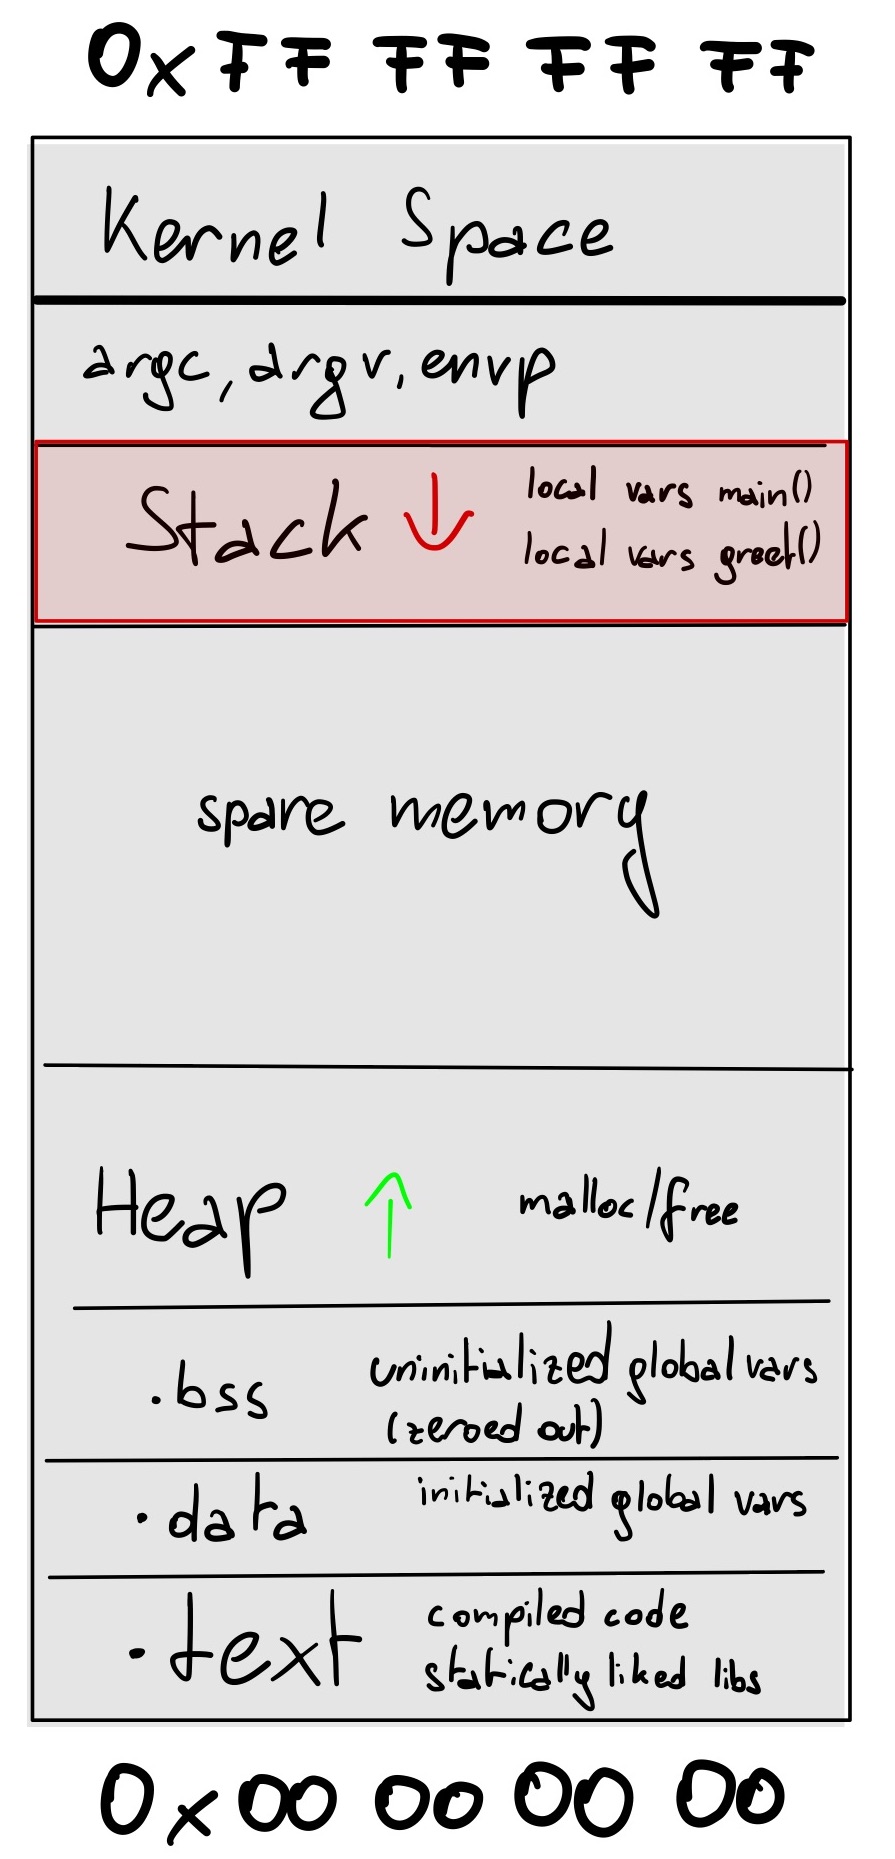 0x FF FF FF FF
Kernel Space
argc, argv, envp
Stack
local vars main()
local vars greet()
spare memory
Heap
malloc/free
.bss
uninitialized global vars
(zeroed out)
.data
initialized global vars
.text
compiled code
statically liked libs
0x00 00 00 00